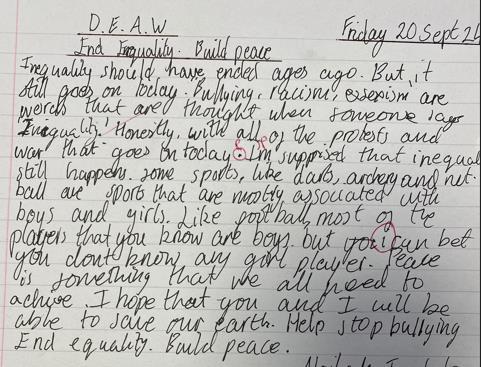 D.E.A.W
Friday 20 Sept 24
End Inequality. Build peace
Inequality should have ended ages ago. But, it
still goes on today. Bullying, racism, are
words that are thought when someone says
'Inequality.' Honestly, with all of the protests and
war that goes on today. I'm suprised that inequal
still happens. some sports, like darts, archery and net-
ball are sports that are mostly associated with
boys and girls. Like football, most of the
players that you know are boys, but I can bet
you dont know any girl player. Peace
is something that we all need to
achive. I hope that you and I will be
able to save our earth. Help stop bullying
End equality. Build peace.